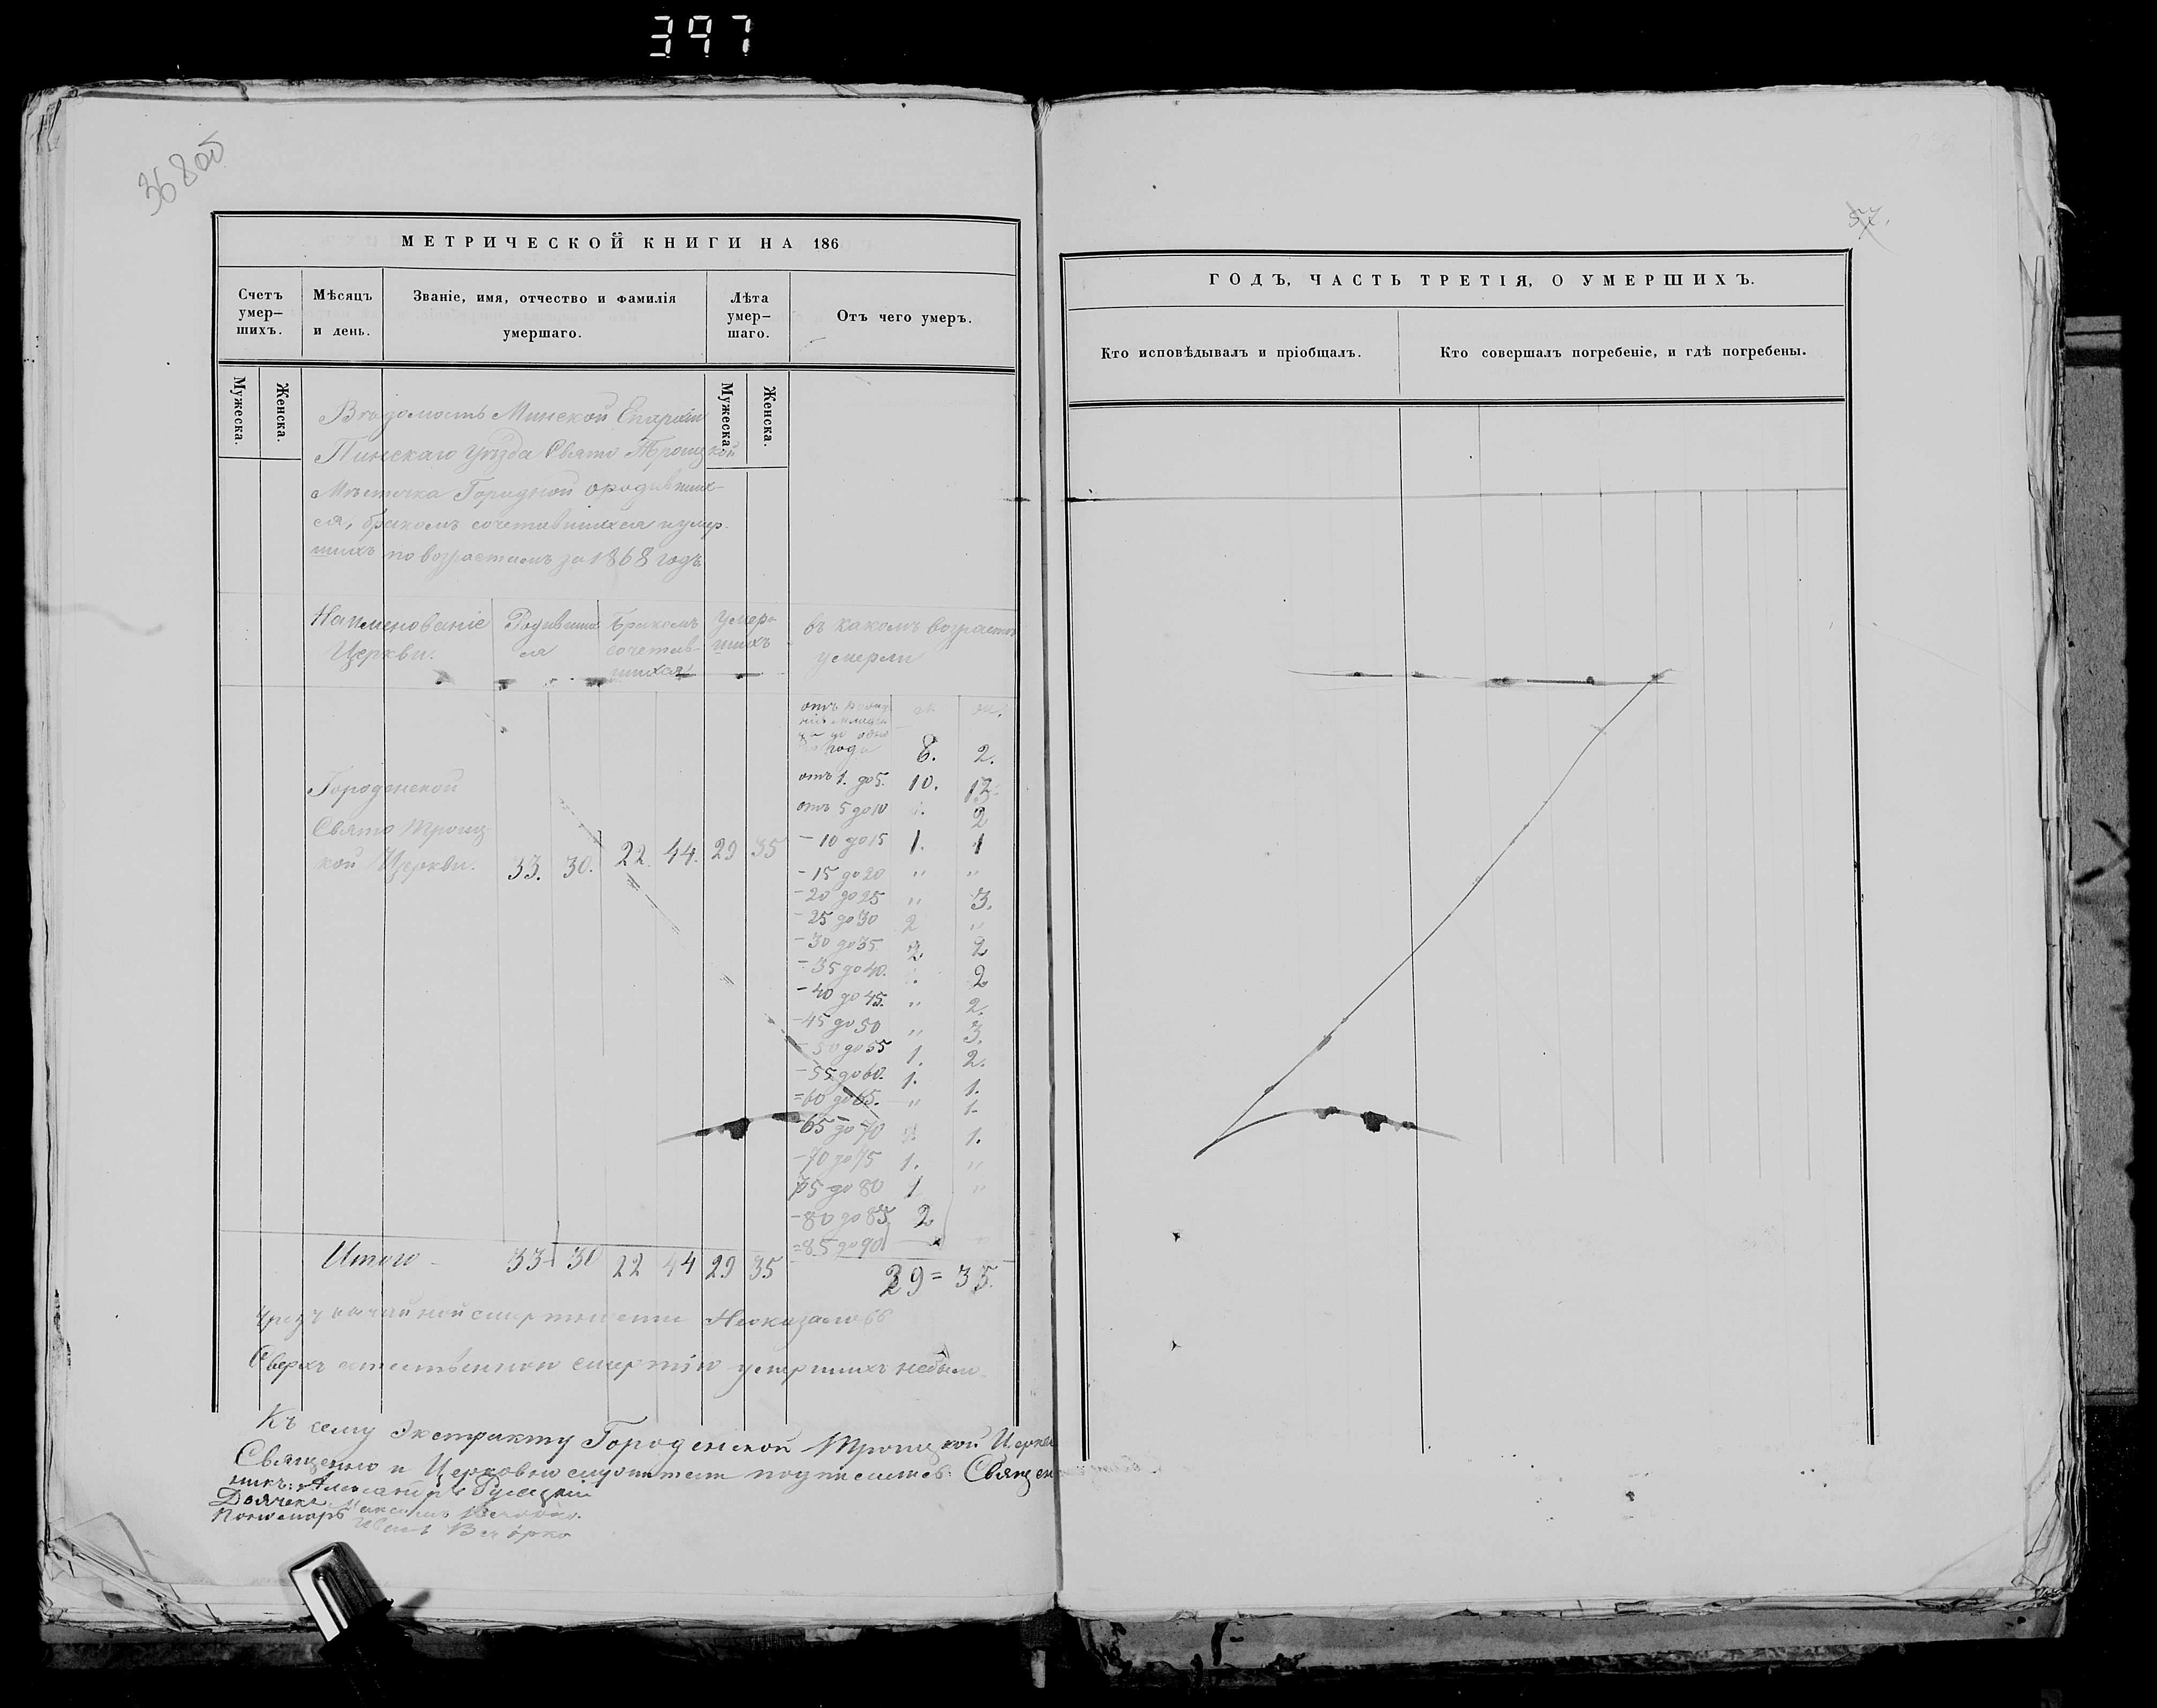 397
368 об
57.
МЕТРИЧЕСКОЙ КНИГИ НА 186
Счетъ умер–шихъ.
Мѣсяцъ и день.
Званіе, имя, отчество и фамилія умершаго.
Лѣта умер–шаго.
Отъ чего умеръ.
Мужеска.
Женска.
Мужеска.
Женска.
Вѣдомость Минской Епархіи
Пинскаго Уѣзда Свято Троицкой
Мѣстечка Городной о родивших-
ся, бракомъ сочетавшихся и умер-
шихъ по возрастамъ за 1868 годъ
Наименованіе Церкви.
Родивших ся
Бракомъ сочетав-шихся
Умер-шихъ
въ какомъ возрастѣ умерли
года 8. 2.
отъ 1. до 5. 10.
отъ 5 до 10 2
— 10 до 15 1. 1
— 15 до 20 " "
— 20 до 25 " 3.
— 25 до 30 2 "
— 30 до 35 2. 2
— 35 до 40. 2
— 40 до 45. " 2.
— 45 до 50 " 3.
— 50 до 55 1. 2.
— 55 до 60. 1. 1.
= 60 до 65. " 1.
65 до 70 1.
— 70 до 75 1. "
75 до 80 1 "
— 80 до 85 2
= 85 до 90
29 = 35.
Городенской
Свято Троиц
кой Церкви. 33. 30. 22. 44. 29 35
Итого – 33 30 22 44 29 35
смертности Неоказалось
Сверхъ естественной смертію умершихъ небыло.
Къ сему Экстракту Городенской Троицкой Церкви
Священно и Церковно служители подписались: Священ
никъ: Александръ
Дьячекъ
Пономарь
ГОДЪ, ЧАСТЬ ТРЕТІЯ, О УМЕРШИХЪ.
Кто исповѣдывалъ и пріобщалъ.
Кто совершалъ погребеніе, и гдѣ погребены.